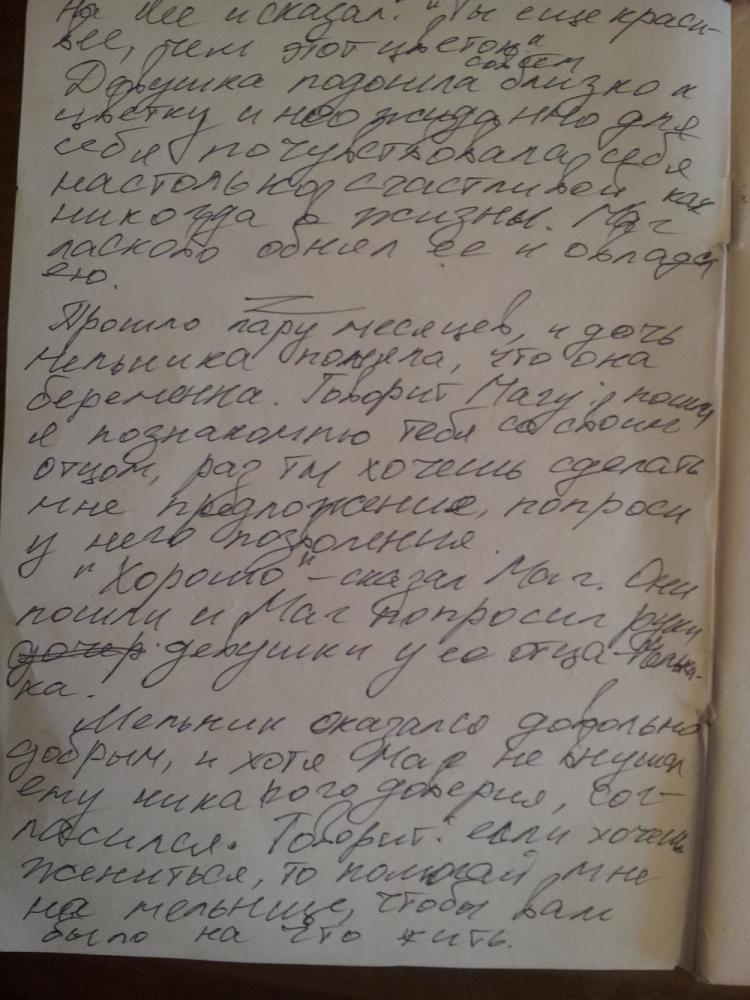 на нее и сказал: "Ты еще краси-
вее, чем этот цветок"
совсем
Девушка подошла близко к
цветку и неожиданно для
себя почувствовала себя
настолько счастливой как
никогда в жизни. Маг
ласково обнял ее и овладел
ею.
Прошло пару месяцев, и дочь
Мельника поняла, что она
беременна. Говорит Магу: пошли
я познакомлю тебя со своим
отцом, раз ты хочешь сделать
мне предложение, попроси
у него позволения.
"Хорошо" - сказал Маг. Они
пошли и Маг попросил руки
дочер девушки у ее отца - Мельни-
ка.
Мельник оказался довольно
добрым, и хотя Маг не внушал
ему никакого доверия, сог-
ласился. Говорит: если хочешь
жениться, то помогай мне
на мельнице, чтобы вам
было на что жить.